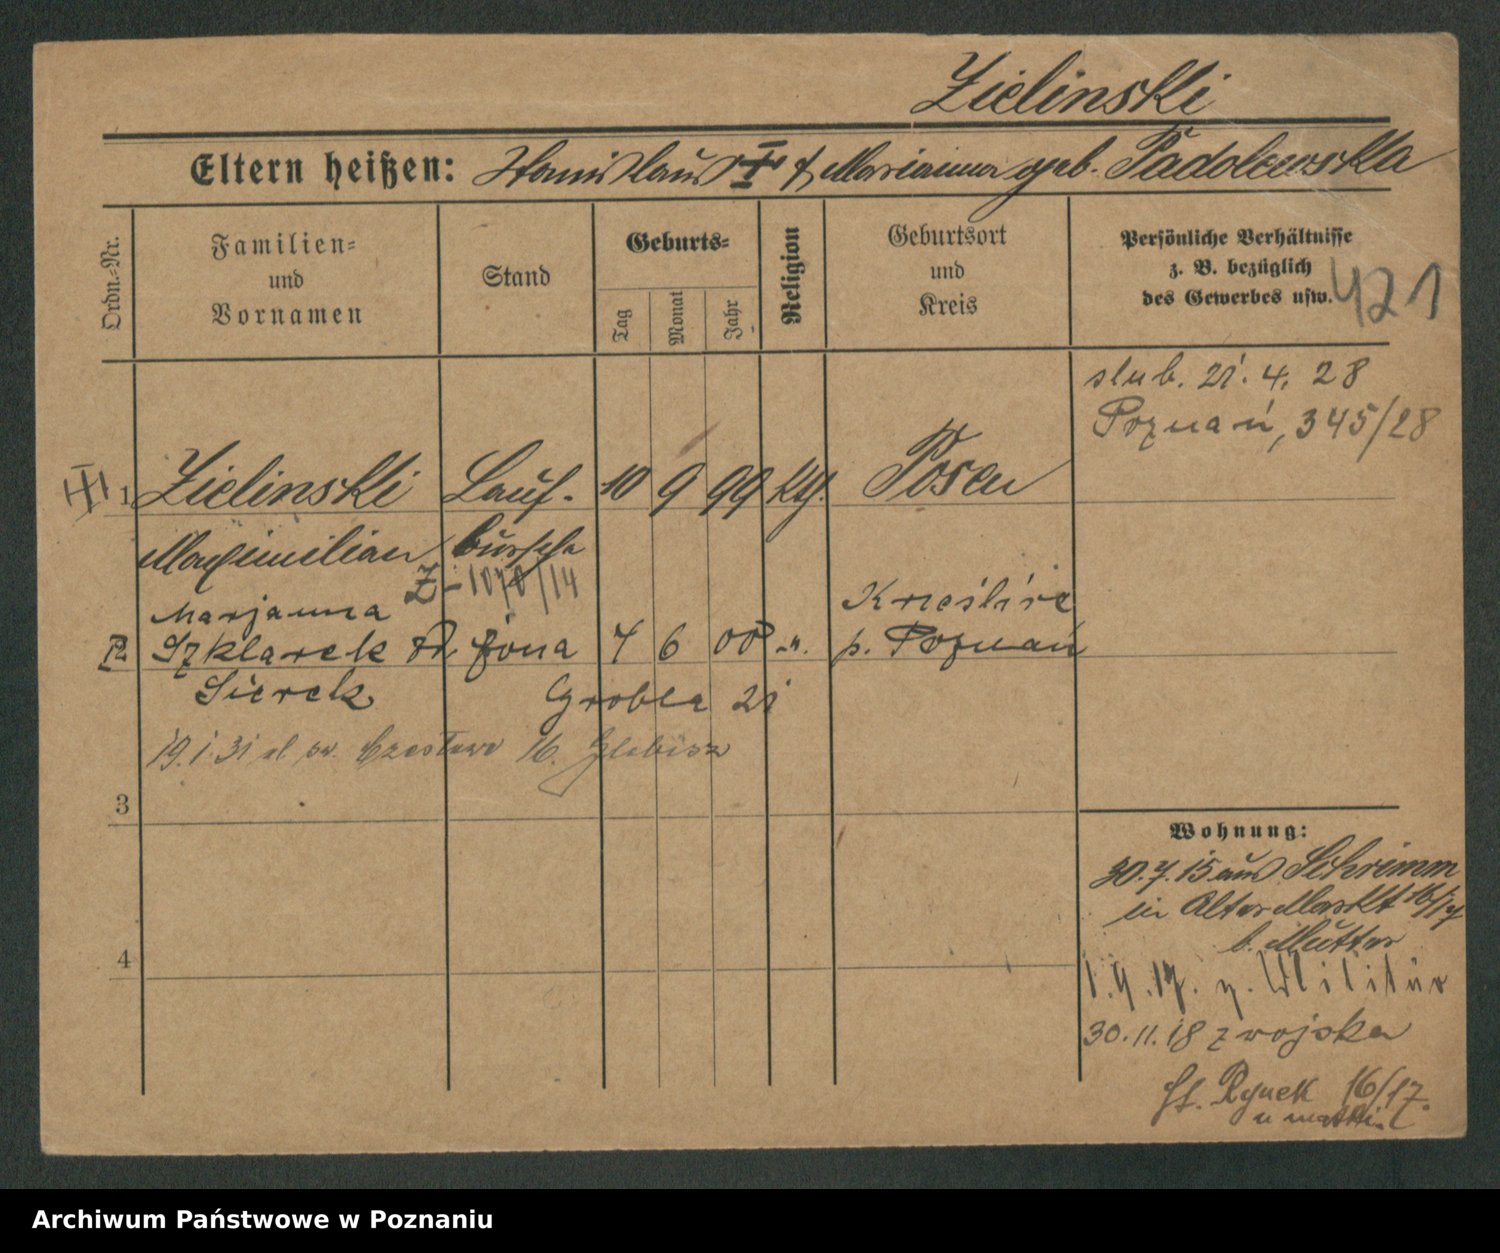 Zielinski
Eltern heißen: Stanislaus † Marianna geb. Padolewska
Ordn.-Nr.
Familien- und Vornamen
Stand
Geburts-
Tag
Monat
Jahr
Religion
Geburtsort und Kreis
Persönliche Verhältnisse
z. B. bezüglich
des Gewerbes usw.
421
slub. 21. 4. 28
Poznań, 345/28
1 Zielinski Lauf- 10 9 99 kth. Posen
Maximilian bursche
Z-1070/14
Marjanna
2 Szklarek żona 7 6 00 -"- p. Poznań
Sierek Grobla 21
19.1.31 ul. św. Czesława 16.
3
4
Wohnung:
30.7.15 aus Schrimm
in Alter Markt 16/17
b. Mutter
1.9.17. z. Militär
30.11.18 z wojska
St. Rynek 16/17.
u matki